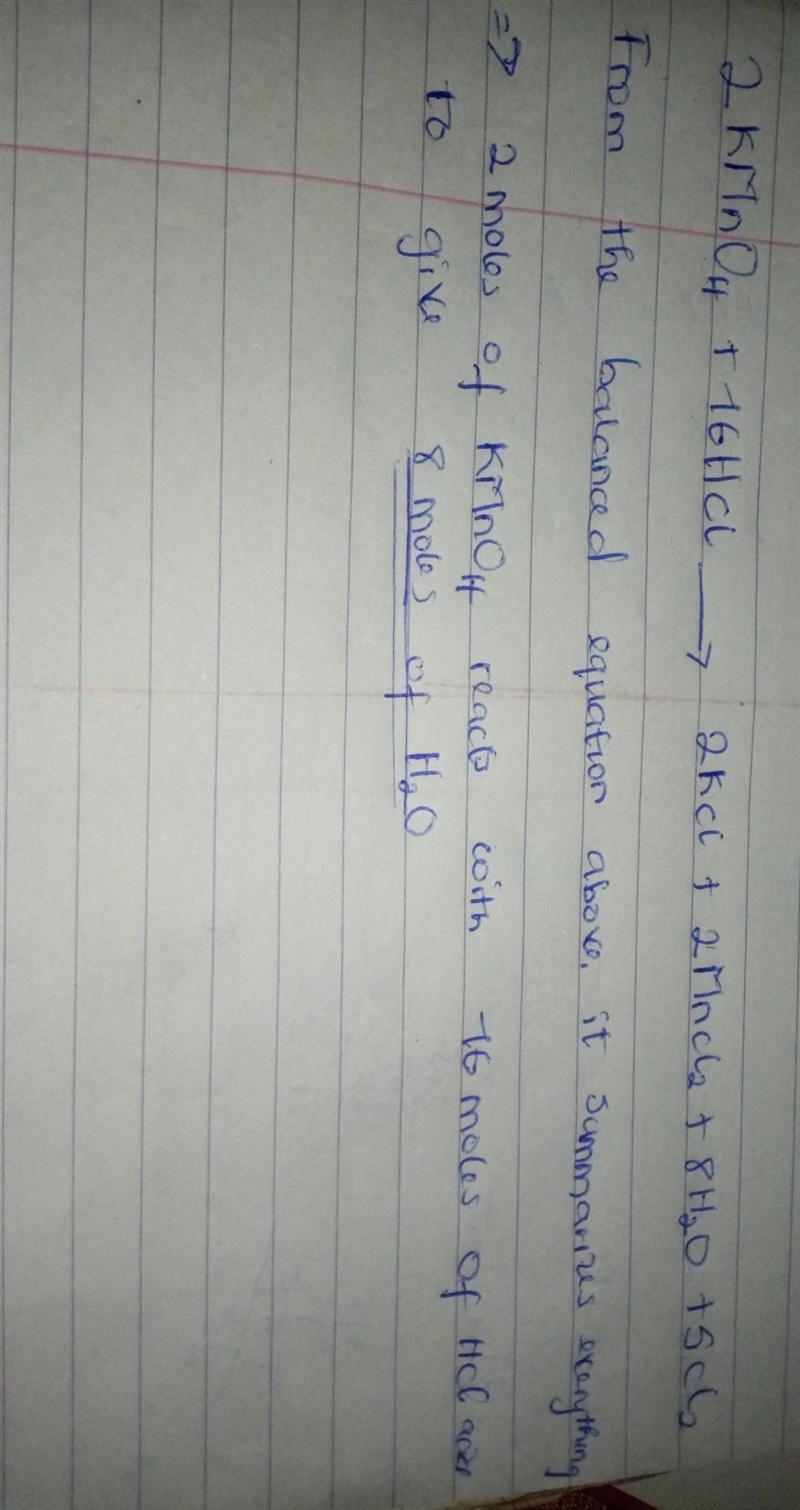 2KMnO₄ + 16HCl ⟶ 2KCl + 2MnCl₂ + 8H₂O + 5Cl₂
From the balanced equation above, it summarizes everything
=> 2 moles of KMnO₄ reacts with 16 moles of HCl
to give 8 moles of H₂O